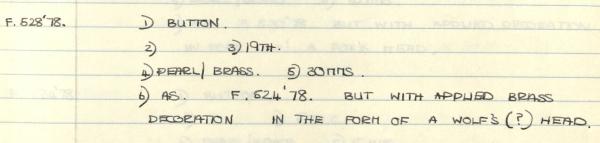 F.528'78. 1) BUTTON.
2) 3) 19TH.
4) PEARL/BRASS. 5) 30MMS.
6) AS. F.524'78. BUT WITH APPLIED BRASS
DECORATION IN THE FORM OF A WOLF'S (?) HEAD.